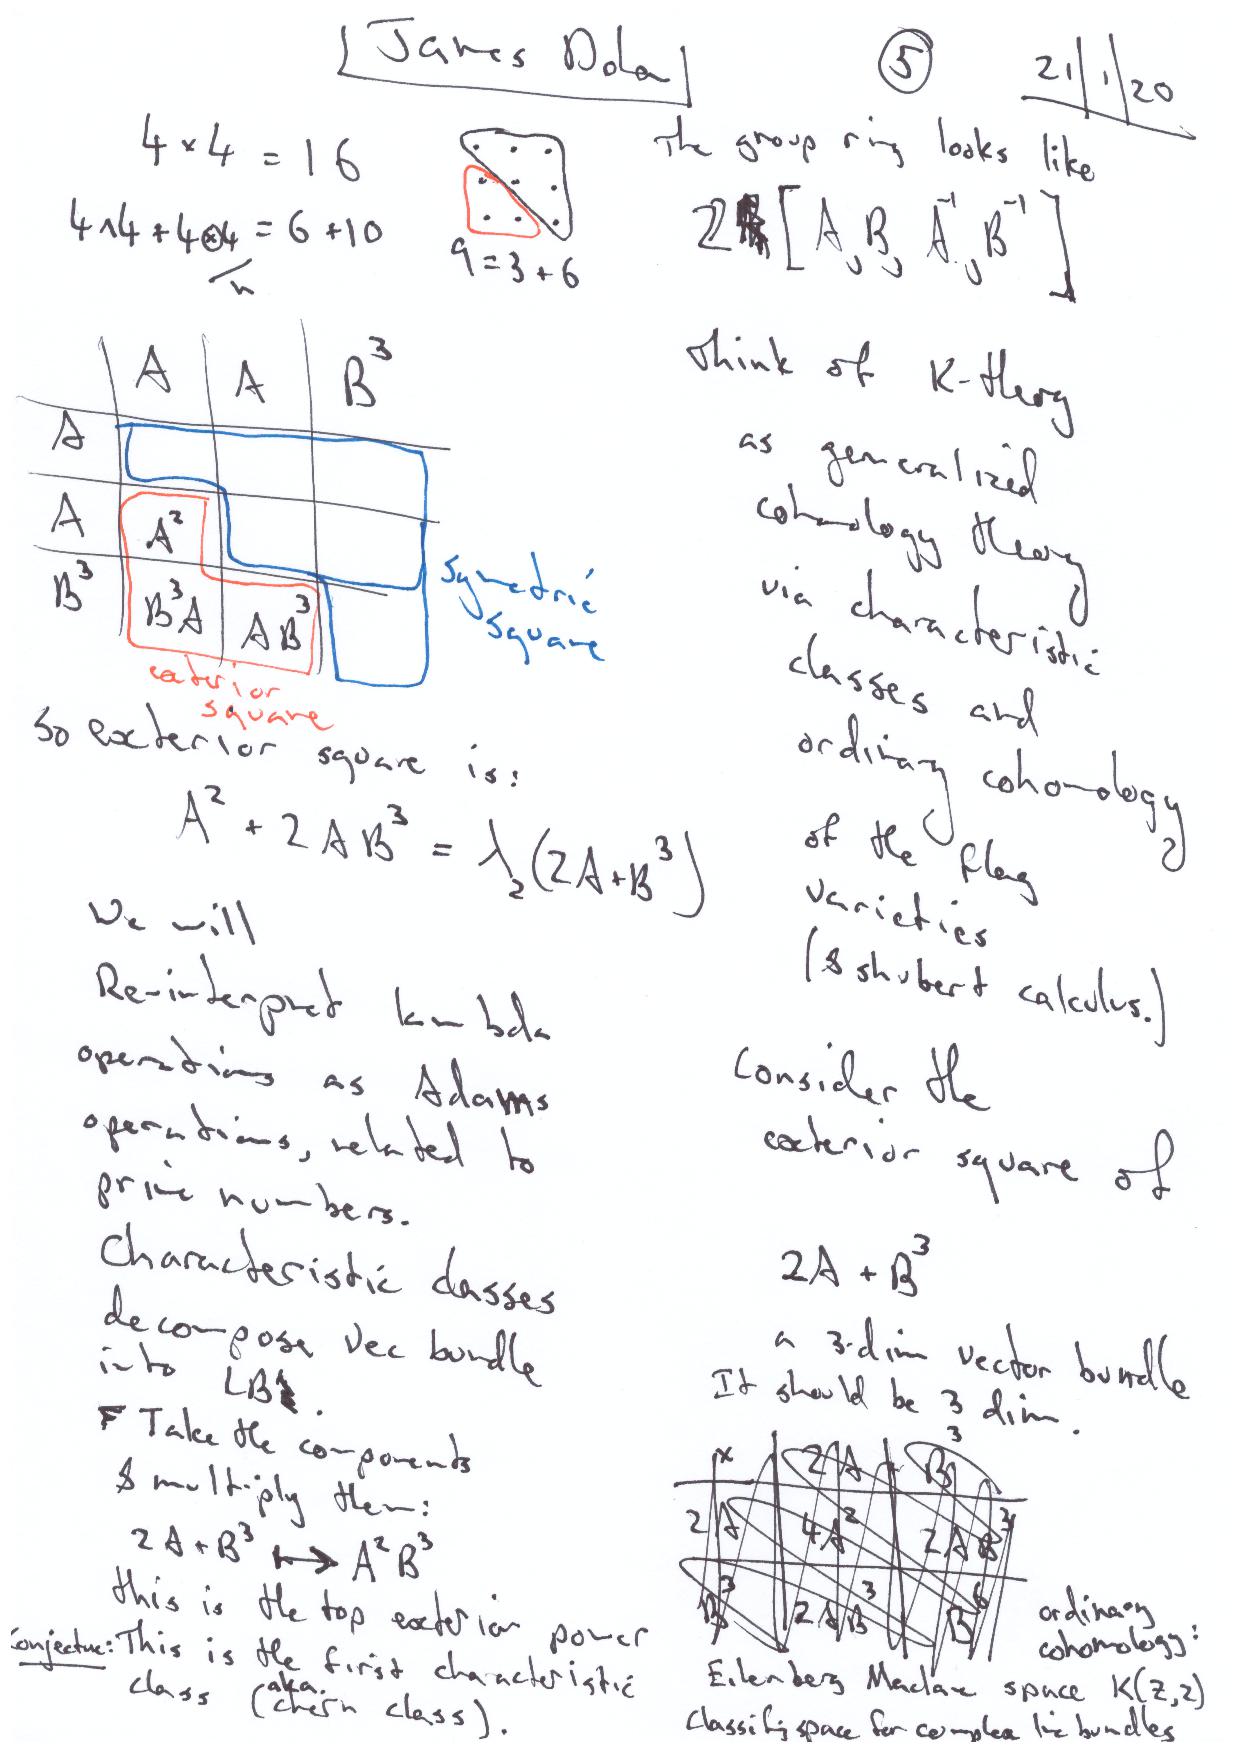 James Dolan
5
21/1/20
4 × 4 = 16
4∧4 + 4⊗4 = 6 + 10
9 = 3 + 6
A A B³
A
A A²
B³ B³A AB³
symetric
square
exterior
square
So exterior square is:
A² + 2AB³ = λ₂(2A+B³)
We will
Re-interpret lambda
operations as Adams
operations, related to
prime numbers.
Characteristic classes
decompose Vec bundle
into LB
Take the components
& multiply them:
2A+B³ ↦ A²B³
this is the top exterior power
Conjecture: This is the first characteristic
class (aka. chern class).
The group ring looks like
Z[A, B, A⁻¹, B⁻¹]
think of K-theory
as generalized
cohomology theory
via characteristic
classes and
ordinary cohomology
of the flag
varieties
(& shubert calculus.)
Consider the
exterior square of
2A + B³
a 3-dim vector bundle
It should be 3 dim.
× 2A B³
2A 4A² 2AB³
B³ 2AB³ B⁶
ordinary
cohomology:
Eilenberg Maclane space K(Z,2)
classifying space for complex line bundles